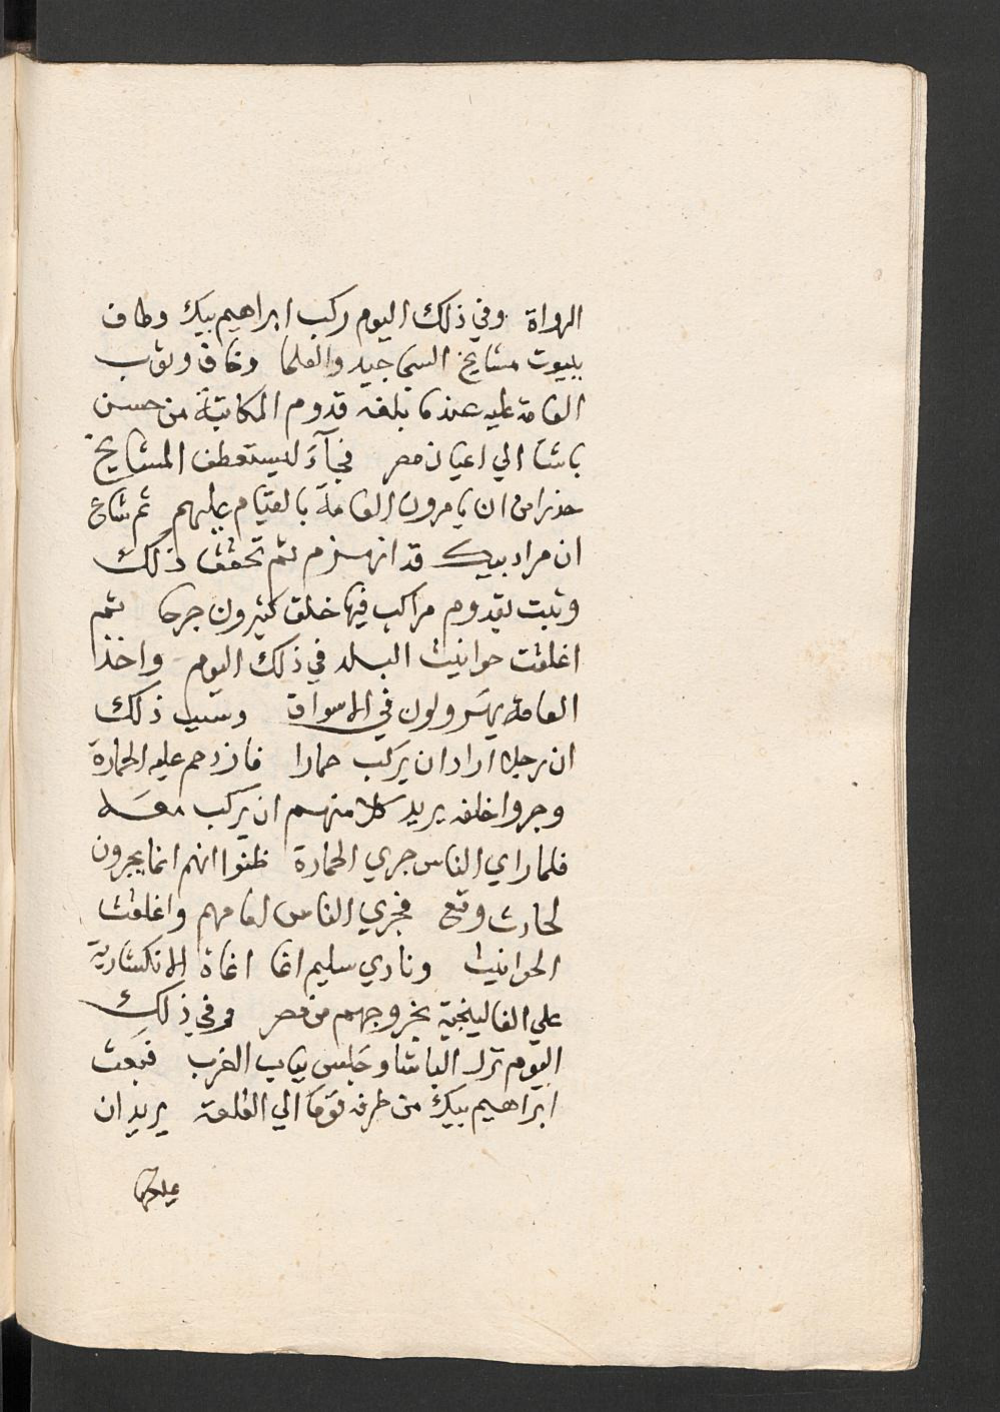 الرواة وفي ذلك اليوم ركب ابراهيم بيك وطاف
ببيوت مشايخ السجاجيد والعلما وخاف وثوب
العامة عليه عندما بلغه قدوم المكاتبة من حسن
باشا الي اعيان مصر فجآء ليستعطف المشايخ
حذرا من ان يامرون العامة بالقيام عليهم ثم شاع
ان مراد بيك قد انهزم ثم تحقق ذلك
وثبت بقدوم مراكب فيها خلق كثيرون جرحا ثم
اغلقت حوانيت البلد في ذلك اليوم واخذا
العامة يهرولون في الاسواق وسبب ذلك
ان رجلا اراد ان يركب حمارا فازدحم عليه الحمارة
وجروا خلفه يريد كلا منهم ان يركب معه
فلما راي الناس جري الحمارة ظنوا انهم انما يجرون
لحادث وقع فجري الناس امامهم واغلقت
الحوانيت ونادي سليم اغا اغاة الانكشارية
علي القالينجية بخروجهم من مصر وفي ذلك
اليوم نزل الباشا وجلس بباب العزب فبعث
ابراهيم بيك من طرفه قوما الي القلعة يريد ان